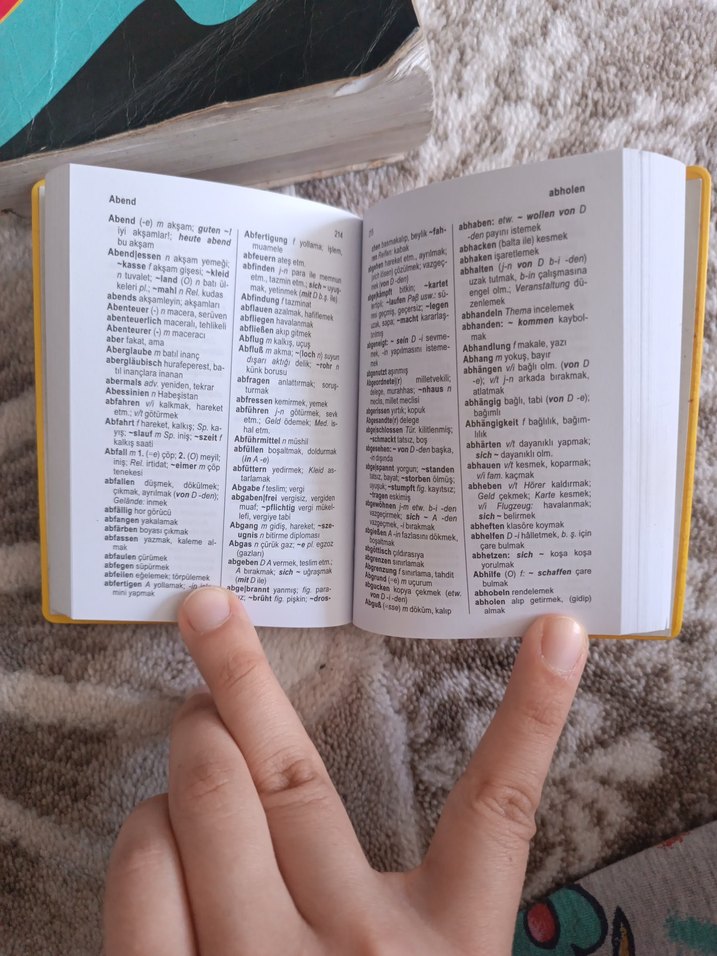 Abend
214
Abend (-e) m akşam; guten ~!
iyi akşamlar!; heute abend
bu akşam
Abend|essen n akşam yemeği;
~kasse f akşam gişesi; ~kleid
n tuvalet; ~land (O) n batı ül-
keleri pl.; ~mahl n Rel. kudas
abends akşamleyin, akşamları
Abenteuer (-) n macera, serüven
abenteuerlich maceralı, tehlikeli
Abenteurer (-) m maceracı
aber fakat, ama
Aberglaube m batıl inanç
abergläubisch hurafeperest, ba-
tıl inançlara inanan
abermals adv. yeniden, tekrar
Abessinien n Habeşistan
abfahren v/i kalkmak, hareket
etm.; v/t götürmek
Abfahrt f hareket, kalkış; Sp. ka-
yış; ~slauf m Sp. iniş; ~szeit f
kalkış saati
Abfall m 1. (=e) çöp; 2. (O) meyil;
iniş; Rel. irtidat; ~eimer m çöp
tenekesi
abfallen düşmek, dökülmek;
çıkmak, ayrılmak (von D -den);
Gelände: inmek
abfällig hor görücü
abfangen yakalamak
abfärben boyası çıkmak
abfassen yazmak, kaleme al-
mak
abfaulen çürümek
abfegen süpürmek
abfeilen eğelemek; törpülemek
abfertigen A yollamak;
mini yapmak
Abfertigung f yollama; işlem,
muamele
abfeuern ateş etm.
abfinden j-n para ile memnun
etm., tazmin etm.; sich ~ uyuş-
mak, yetinmek (mit D b.ş. ile)
Abfindung f tazminat
abflauen azalmak, hafiflemek
abfliegen havalanmak
abfließen akıp gitmek
Abflug m kalkış, uçuş
Abfluß m akma; ~(loch n) suyun
dışarı aktığı delik; ~rohr n
künk borusu
abfragen anlattırmak; soruş-
turmak
abfressen kemirmek, yemek
abführen j-n götürmek, sevk
etm.; Geld ödemek; Med. is-
hal etm.
Abführmittel n müshil
abfüllen boşaltmak, doldurmak
(in A -e)
abfüttern yedirmek; Kleid as-
tarlamak
Abgabe f teslim; vergi
abgaben|frei vergisiz, vergiden
muaf; ~pflichtig vergi mükel-
lefi, vergiye tabi
Abgang m gidiş, hareket; ~sze-
ugnis n bitirme diploması
Abgas n çürük gaz; ~e pl. egzoz
(gazları)
abgeben D A vermek, teslim etm.;
A bırakmak; sich ~ uğraşmak
(mit D ile)
abge|brannt yanmış; fig. para-
~brüht fig. pişkin; ~dros-
abholen
basmakalıp, beylik ~fah-
ren Reifen: kabak
abgehen hareket etm., ayrılmak;
çözülmek; vazgeç-
mek (von D -den)
abgekämpft bitkin; ~kartet
~laufen Paß usw.: sü-
resi geçmiş, geçersiz; ~legen
uzak, sapa; ~macht kararlaş-
tırılmış
abgeneigt: ~ sein D -i sevme-
mek, -in yapılmasını isteme-
mek
abgenutzt aşınmış
Abgeordnete(r) milletvekili;
delege, murahhas; ~nhaus n
meclis, millet meclisi
abgerissen yırtık; kopuk
Abgesandte(r) delege
abge|schlossen Tür. kilitlenmiş;
~schmackt tatsız, boş
abgesehen: ~ von D -den başka,
-in dışında
abge|spannt yorgun; ~standen
tatsız, bayat; ~storben ölmüş;
uyuşuk; ~stumpft fig. kayıtsız;
~tragen eskimiş
abgewöhnen j-m etw. b-i -den
vazgeçirmek; sich ~ A -den
vazgeçmek, -i bırakmak
abgießen A -in fazlasını dökmek,
boşaltmak
abgöttisch çıldırasıya
abgrenzen sınırlamak
Abgrenzung f sınırlama, tahdit
Abgrund (=e) m uçurum
abgucken kopya çekmek (etw.
von D -i -den)
Abguß (=sse) m döküm, kalıp
abhaben: etw. ~ wollen von D
-den payını istemek
abhacken (balta ile) kesmek
abhaken işaretlemek
abhalten (j-n von D b-i -den)
uzak tutmak, b-in çalışmasına
engel olm.; Veranstaltung dü-
zenlemek
abhandeln Thema incelemek
abhanden: ~ kommen kaybol-
mak
Abhandlung f makale, yazı
Abhang m yokuş, bayır
abhängen v/i bağlı olm. (von D
-e); v/t j-n arkada bırakmak,
atlatmak
abhängig bağlı, tabi (von D -e);
bağımlı
Abhängigkeit f bağlılık, bağım-
lılık
abhärten v/t dayanıklı yapmak;
sich ~ dayanıklı olm.
abhauen v/t kesmek, koparmak;
v/i fam. kaçmak
abheben v/t Hörer kaldırmak;
Geld çekmek; Karte kesmek;
v/i Flugzeug: havalanmak;
sich ~ belirmek
abheften klasöre koymak
abhelfen D -i hâlletmek, b. ş. için
çare bulmak
abhetzen: sich ~ koşa koşa
yorulmak
Abhilfe (O) f: ~ schaffen çare
bulmak
abhobeln rendelemek
abholen alıp getirmek, (gidip)
almak